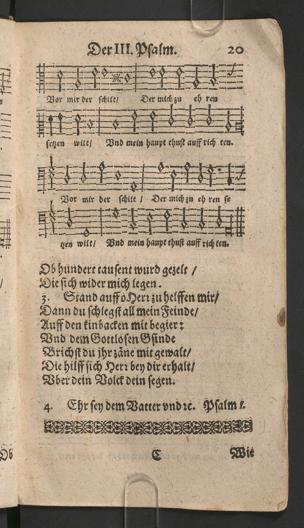 Der III. Psalm. 20
Vor mir der schilt / Der mich zu eh ren
setzen wilt / Vnd mein haupt thust auff rich ten.
Vor mir der schilt / Der mich zu eh ren se
tzen wilt / Vnd mein haupt thust auff rich ten.
Ob hundert tausent wurd gezelt /
Die sich wider mich legen.
3. Stand auff o Herr zu helffen mir /
Dann du schlegst all mein Feinde /
Auff den kinbacken mit begier:
Vnd dem Gottlosen Gsinde
Brichst du jhr zäne mit gewalt /
Die hilff sich Herr bey dir erhalt /
Vber dein Volck dein segen.
4. Ehr sey dem Vatter vnd ꝛc. Psalm
C Wie
Ob